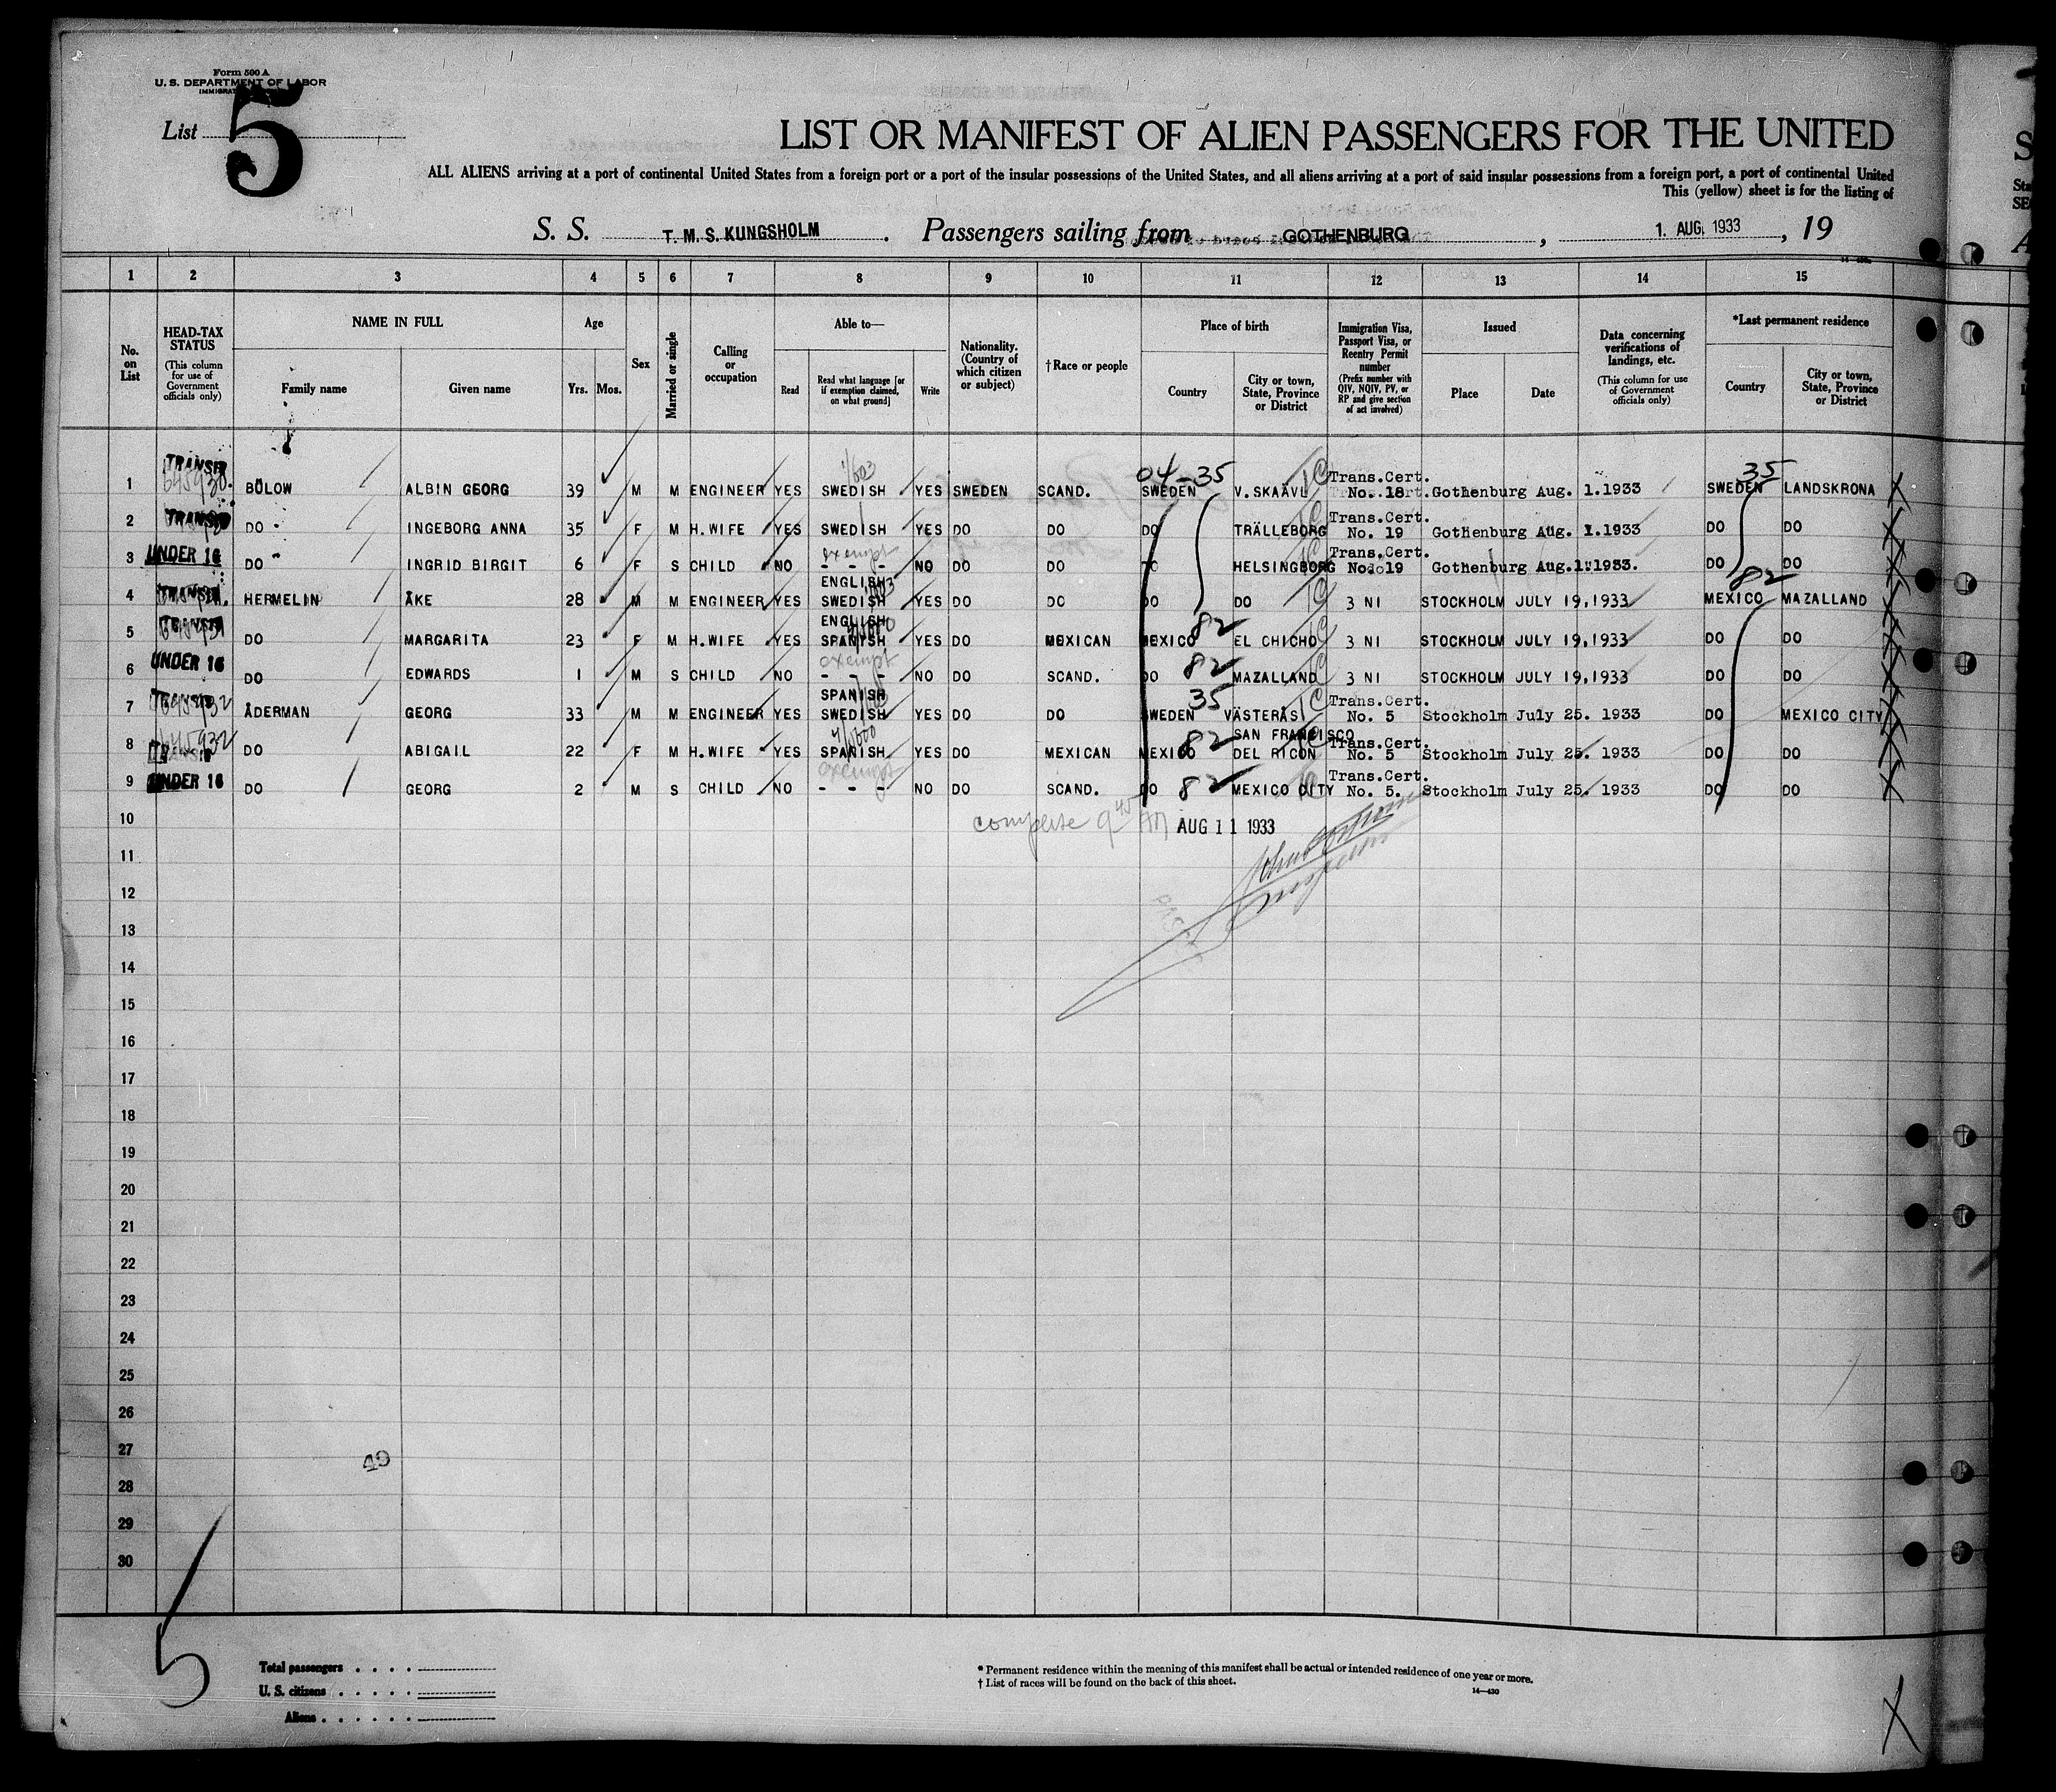 Form 500 A
U. S. DEPARTMENT OF LABOR
List 5
LIST OR MANIFEST OF ALIEN PASSENGERS FOR THE UNITED
ALL ALIENS arriving at a port of continental United States from a foreign port or a port of the insular possessions of the United States, and all aliens arriving at a port of said insular possessions from a foreign port, a port of continental United
This (yellow) sheet is for the listing of
S. S. T. M. S. KUNGSHOLM. Passengers sailing from GOTHENBURG, 1. AUG. 1933, 19
1 2 3 4 5 6 7 8 9 10 11 12 13 14 15
No. on List
HEAD-TAX STATUS (This column for use of Government officials only)
NAME IN FULL
Family name Given name
Age
Yrs. Mos.
Sex
Married or single
Calling or occupation
Able to—
Read
Read what language [or if exemption claimed, on what ground]
Write
Nationality. (Country of which citizen or subject)
† Race or people
Place of birth
Country
City or town, State, Province or District
Immigration Visa, Passport Visa, or Reentry Permit number (Prefix number with QIV, NQIV, PV, or RP and give section of act involved)
Issued
Place Date
Data concerning verifications of landings, etc. (This column for use of Government officials only)
*Last permanent residence
Country
City or town, State, Province or District
04-35 35
1 TRANSIT BÜLOW ALBIN GEORG 39 M M ENGINEER YES SWEDISH YES SWEDEN SCAND. SWEDEN V.SKAAVL Trans.Cert. No. 18 Gothenburg Aug. 1.1933 SWEDEN LANDSKRONA
2 TRANSIT DO INGEBORG ANNA 35 F M H.WIFE YES SWEDISH YES DO DO DO TRÄLLEBORG Trans.Cert. No. 19 Gothenburg Aug. 1.1933 DO DO
3 UNDER 16 DO INGRID BIRGIT 6 F S CHILD NO exempt - - - NO DO DO DO HELSINGBORG Trans.Cert. No. 19 Gothenburg Aug.1.1933. DO DO
4 TRANSIT HERMELIN ÅKE 28 M M ENGINEER YES ENGLISH SWEDISH YES DO DO DO DO 3 NI STOCKHOLM JULY 19,1933 82 MEXICO MAZALLAND
5 TRANSIT DO MARGARITA 23 F M H.WIFE YES ENGLISH SPANISH YES DO MEXICAN MEXICO 82 EL CHICHO 3 NI STOCKHOLM JULY 19,1933 DO DO
6 UNDER 16 DO EDWARDS 1 M S CHILD NO exempt - - - NO DO SCAND. DO 82 MAZALLAND 3 NI STOCKHOLM JULY 19,1933 DO DO
7 TRANSIT ÅDERMAN GEORG 33 M M ENGINEER YES SPANISH SWEDISH YES DO DO SWEDEN 35 VÄSTERÅS Trans.Cert. No. 5 Stockholm July 25. 1933 DO MEXICO CITY
8 TRANSIT DO ABIGAIL 22 F M H.WIFE YES SPANISH YES DO MEXICAN MEXICO 82 SAN FRANCISCO DEL RICON Trans.Cert. No. 5 Stockholm July 25. 1933 DO DO
9 UNDER 16 DO GEORG 2 M S CHILD NO exempt - - - NO DO SCAND. DO 82 MEXICO CITY Trans.Cert. No. 5. Stockholm July 25. 1933 DO DO
10 complete 9 45 AM AUG 11 1933
11
12
13
14
15
16
17
18
19
20
21
22
23
24
25
26
27
49
28
29
30
5
Total passengers
U. S. citizens
Aliens
* Permanent residence within the meaning of this manifest shall be actual or intended residence of one year or more.
† List of races will be found on the back of this sheet.
14—430